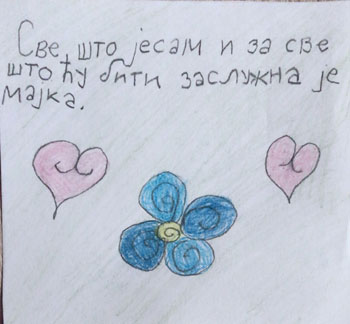 Све, што јесам и за све
што ћу бити заслужна је
мајка.